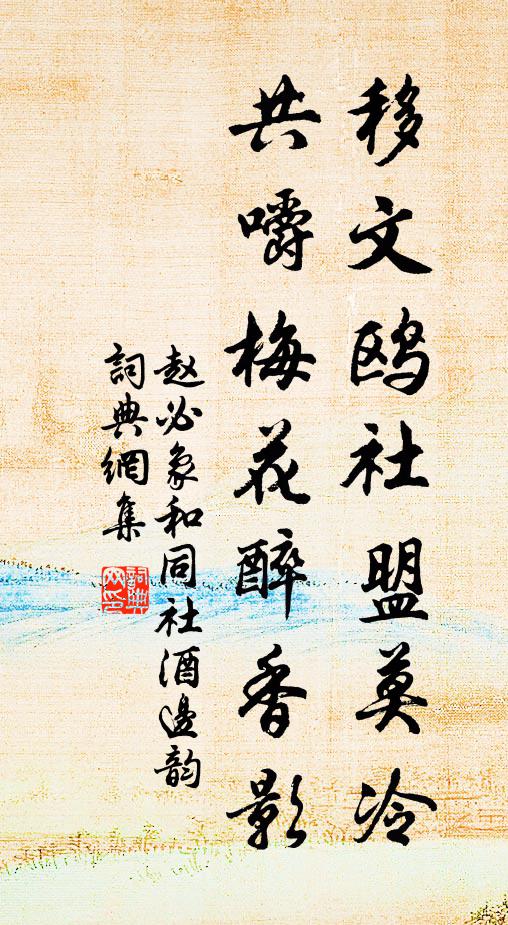 移文鸥社盟莫冷
共嚼梅花醉香影
赵必象和同社酒邊韵
詞典網集